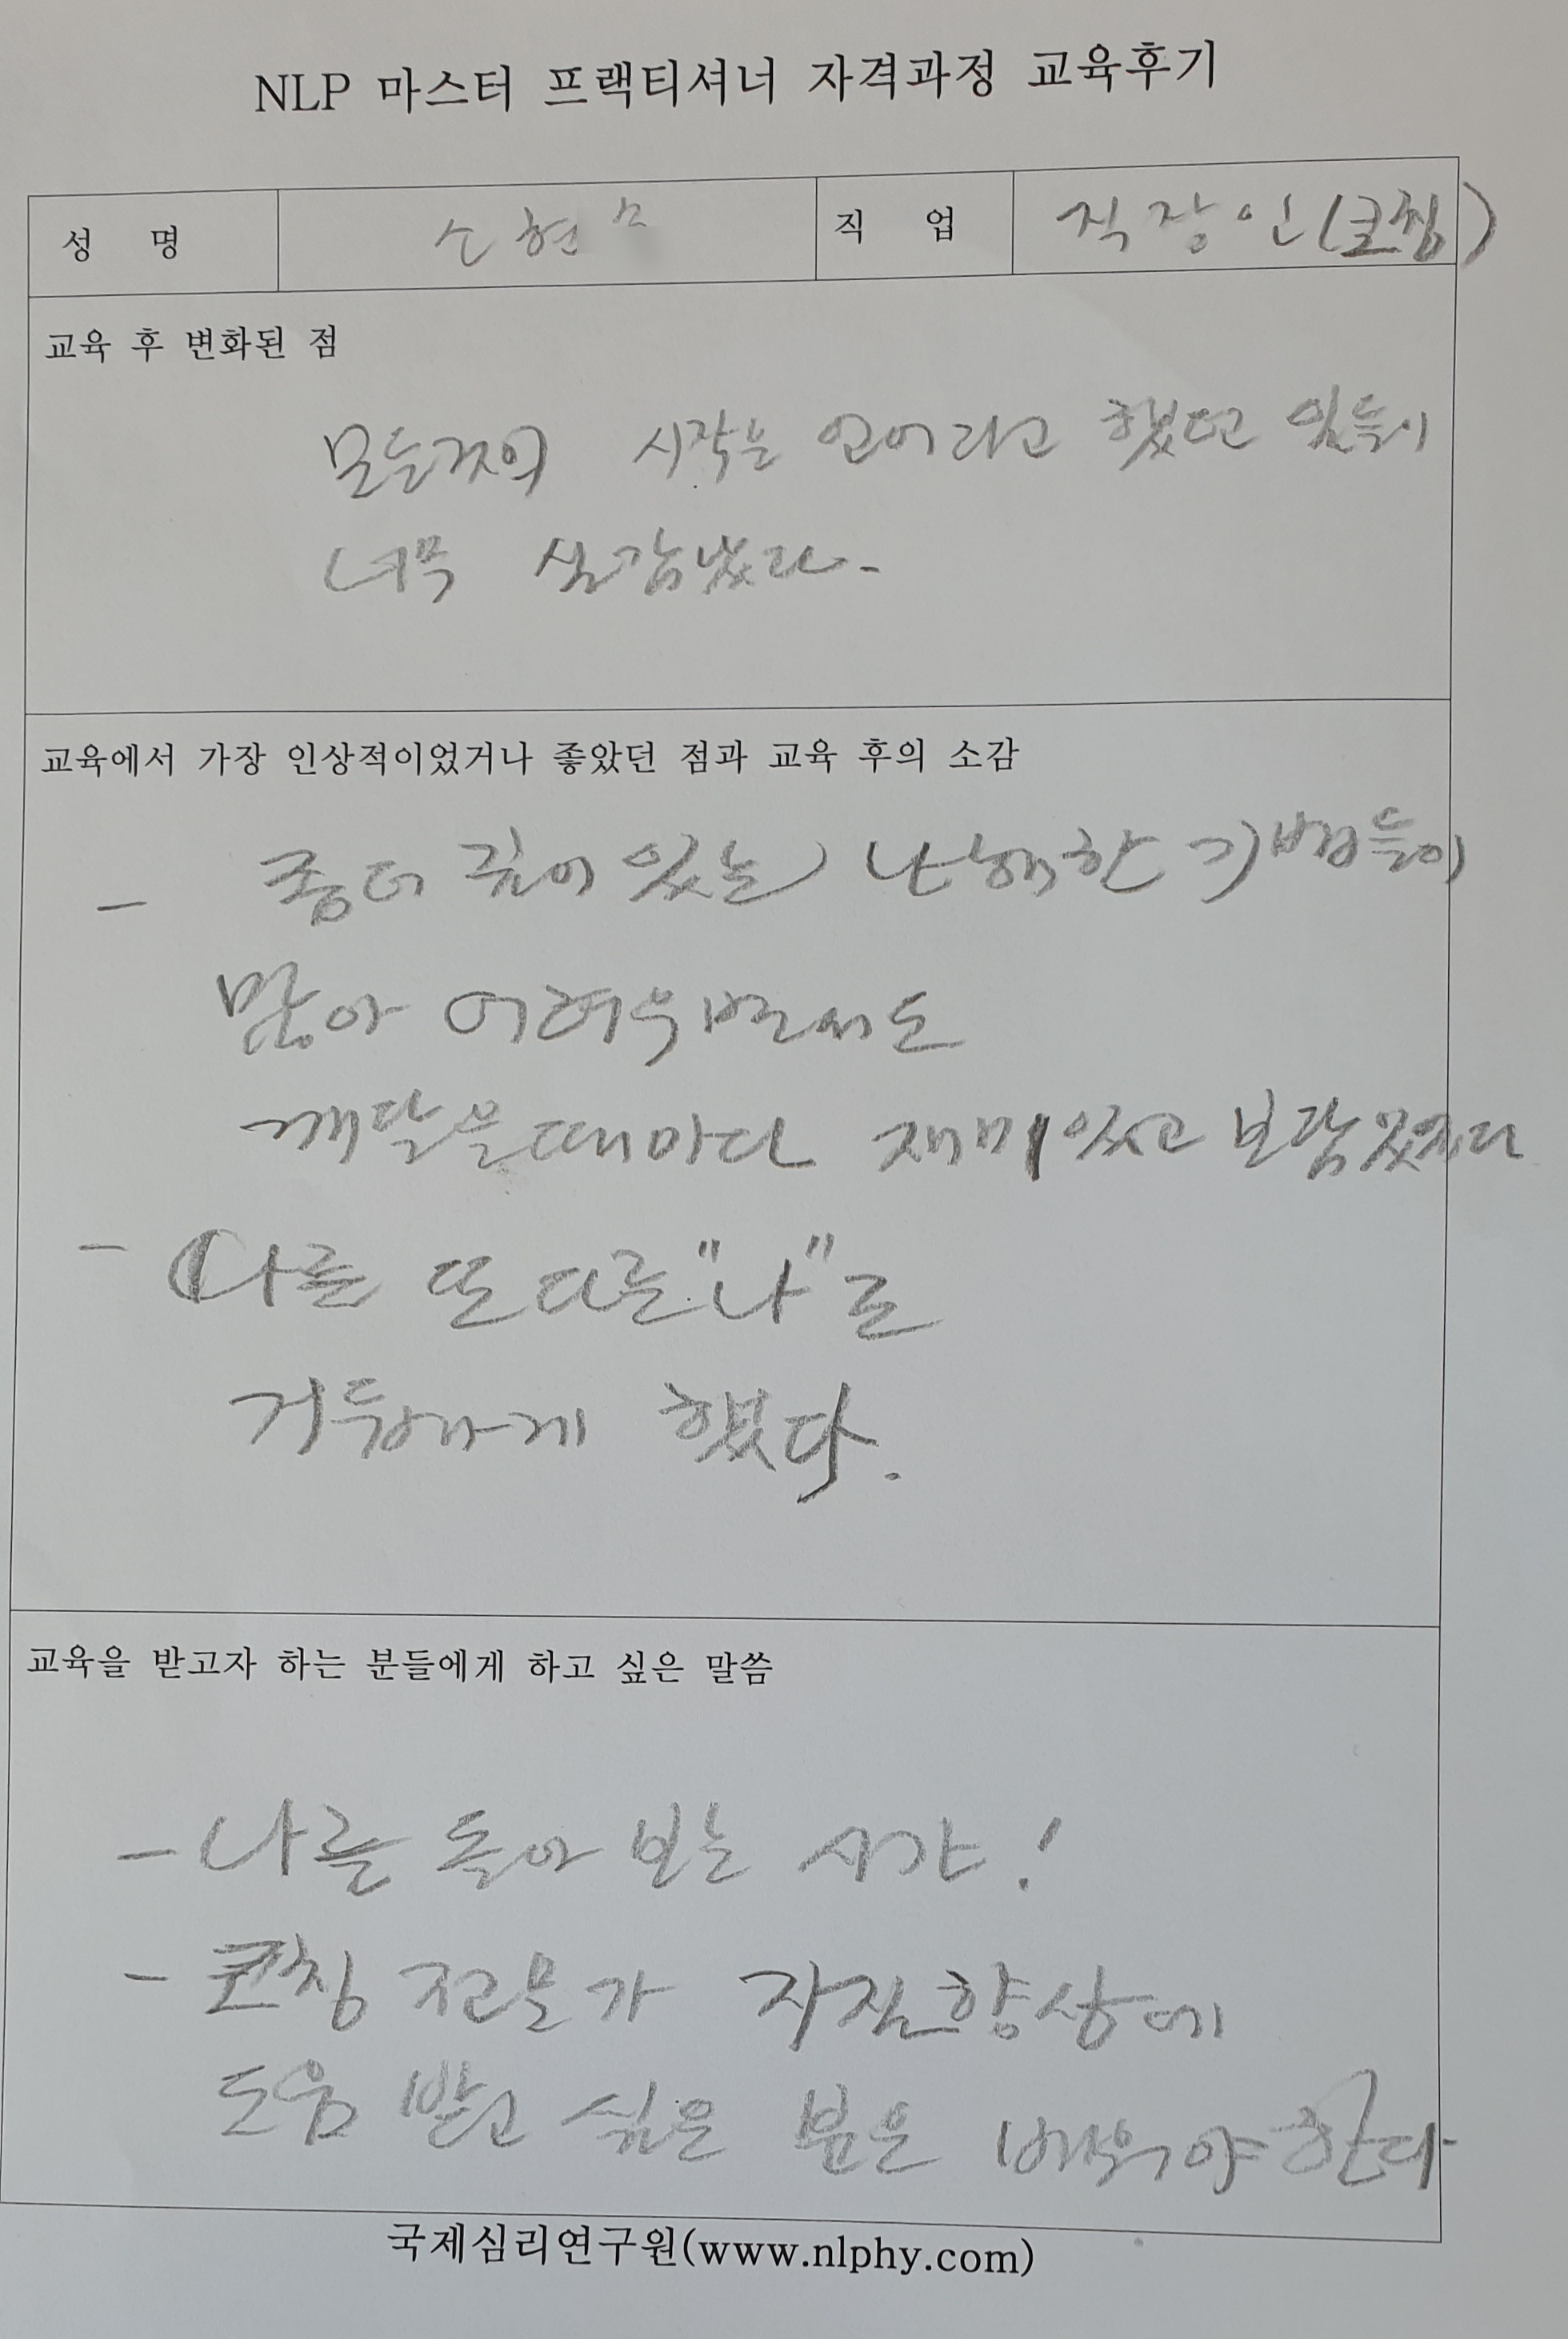 NLP 마스터 프랙티셔너 자격과정 교육후기
성 명 손현 직 업 직장인(코칭)
교육 후 변화된 점
모든것의 시작은 언어라고 했던 일들이
너무 실감났다.
교육에서 가장 인상적이었거나 좋았던 점과 교육 후의 소감
- 좀더 깊이 있는 난해한 기법들이
많아 어려우면서도
깨달을때마다 재미있고 보람있었다
- 나를 또다른 "나"로
거듭나게 했다.
교육을 받고자 하는 분들에게 하고 싶은 말씀
- 나를 돌아 보는 시간!
- 코칭 전문가 자질향상에
도움 받고 싶은 분은 배워야한다
국제심리연구원(www.nlphy.com)